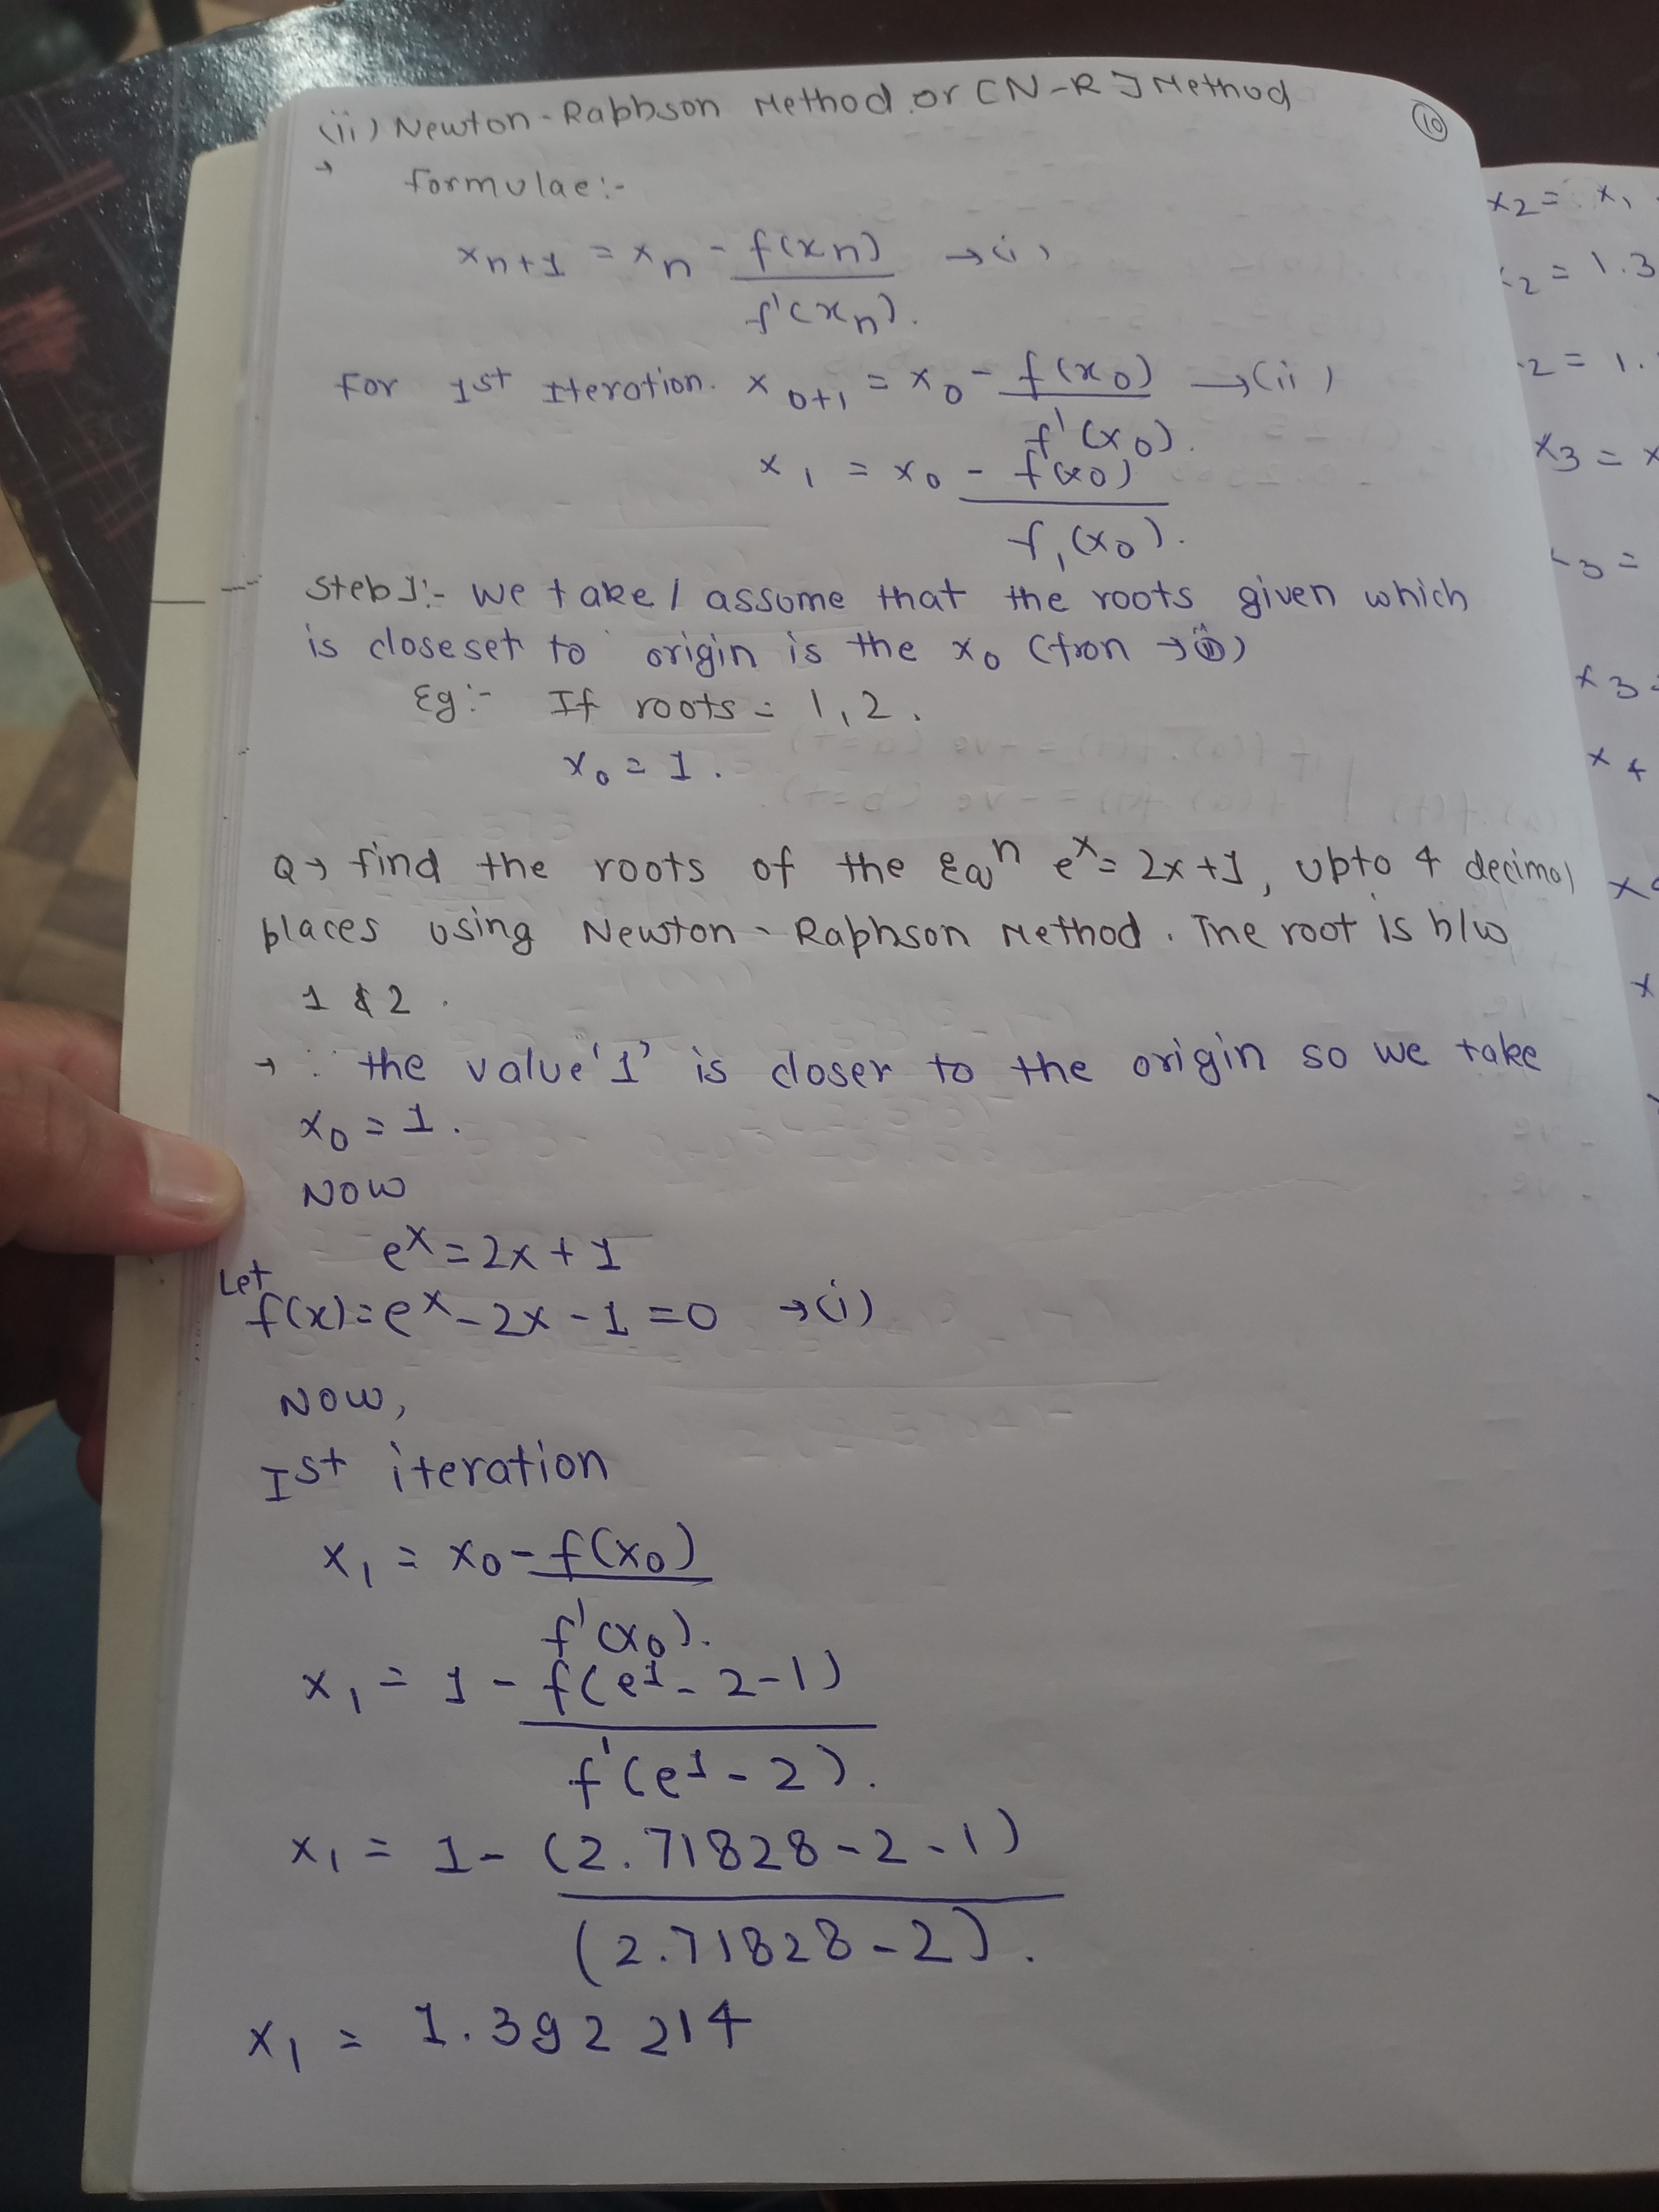 (ii) Newton-Raphson Method or [N-R] Method
10
→ formulae:-
x_{n+1} = x_n - f(x_n) / f'(x_n). → (i)
For 1st Iteration. x_{0+1} = x_0 - f(x_0) / f'(x_0). → (ii)
x_1 = x_0 - f(x_0) / f_1(x_0).
Step 1:- We take / assume that the roots given which
is closeset to origin is the x_0 (fron →)
Eg:- If roots = 1, 2.
x_0 = 1.
Q → find the roots of the Eqⁿ e^x = 2x+1, upto 4 decimal
places using Newton-Raphson Method. The root is b/w
1 & 2.
→ ∵ the value '1' is closer to the origin so we take
x_0 = 1.
Now
e^x = 2x + 1
Let
f(x) = e^x - 2x - 1 = 0 → (i)
Now,
Ist iteration
x_1 = x_0 - f(x_0) / f'(x_0).
x_1 = 1 - f(e^1 - 2 - 1) / f'(e^1 - 2).
x_1 = 1 - (2.71828 - 2 - 1) / (2.71828 - 2).
x_1 = 1.392214
x_2 = x_1
2 = 1.3
2 = 1.
x_3 = x
3 =
x_3
x_4
x
x